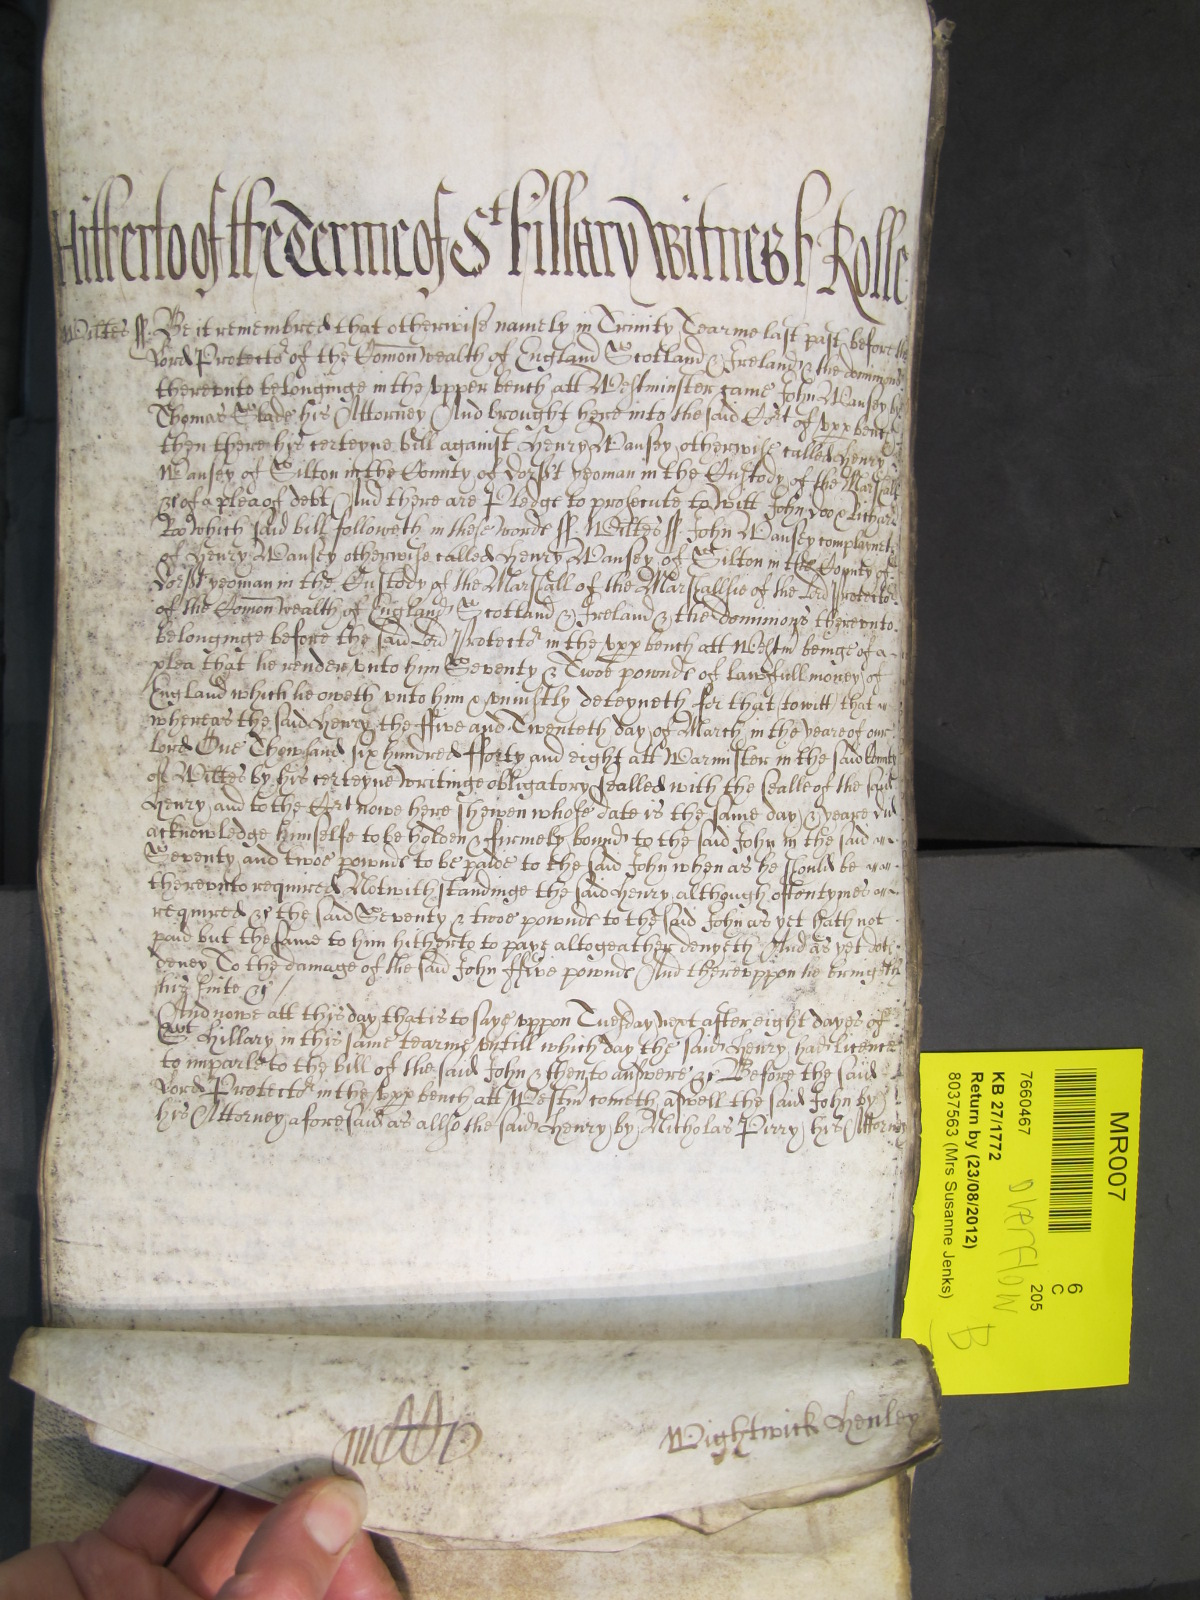 Hitherto of the Terme of St Hillary Witnes H Rolle
Wiltes ss. Be it remembred that otherwise namely in Trinity Tearme last past before the
Lord Protector of the Comon wealth of England Scotland & Ireland & the dominions
therevnto belonginge in the vpper bench att Westminster came John Wansey by
Thomas Slade his Attorney And brought here into the said Cort of vpp bench
then there his certeyne bill against Henry Wansey otherwise called Henry
Wansey of Silton in the County of Dorset yeoman in the Custody of the Marshall
&c of a plea of debt And there are Pledge to prosecute to witt John Doo & Richard
Roo which said bill followeth in these words ss. Wiltes ss. John Wansey complayneth
of Henry Wansey otherwise called Henry Wansey of Silton in the County of
Dorset yeoman in the Custody of the Marshall of the Marshallsie of the Lord Protector
of the Comon wealth of England Scotland & Ireland & the dominions therevnto
belonginge before the said Lord Protector in the vpp bench att Westm beinge of a
plea that he render vnto him Seventy & Twoe pownds of lawfull money of
England which he oweth vnto him & vniustly deteyneth for that (to witt) that
whereas the said Henry the ffive and Twenteth day of March in the yeare of our
Lord One Thowsand six hundred fforty and eight att Warmister in the said County
of Wiltes by his certeyne writinge obligatory sealled with the sealle of the said
Henry and to the Cort nowe here shewen whose date is the same day & yeare did
acknowledge himselfe to be holden & firmely bound to the said John in the said
Seventy and twoe pownds to be paide to the said John when as he should be
therevnto required Notwithstandinge the said Henry although oftentymes
required &c the said Seventy & twoe pownds to the said John as yet hath not
paid but the same to him hitherto to paye altogeather denyeth And as yet doth
deney To the damage of the said John ffive pownds And therevppon he bringeth
his suite &c
And nowe att this day that is to saye vppon Tuesday next after eight dayes of
St Hillary in this same tearme vntill which day the said Henry had licence
to imparle to the bill of the said John & then to answere &c Before the said
Lord Protector in the vpp bench att Westm cometh aswell the said John by
his Attorney aforesaid as allso the said Henry by Nicholas Pirry his Attorney
Wightwick Henley
MR007
6
C
205
7660467
overflow
B
KB 27/1772
Return by (23/08/2012)
8037563 (Mrs Susanne Jenks)